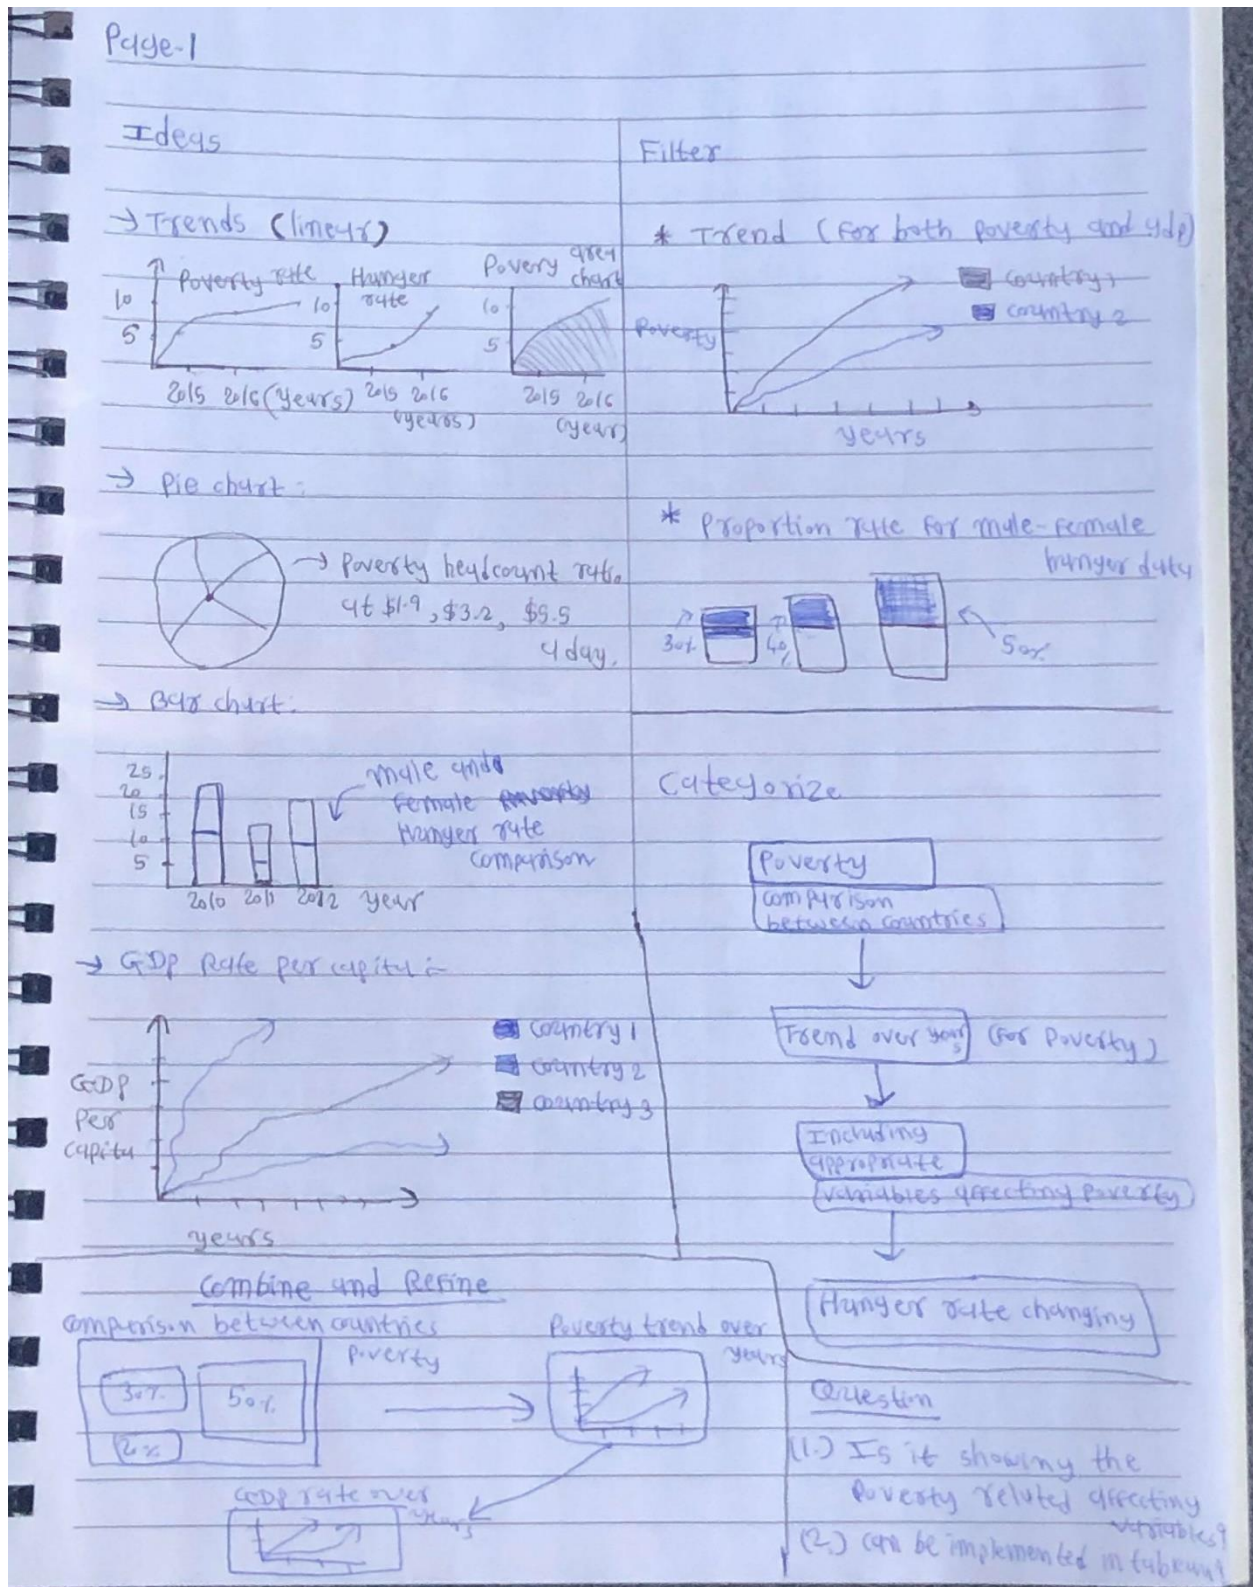 Page-1
Ideas
→ Trends (linear)
Poverty rate
10
5
2015 2016 (years)
Hunger
rate
10
5
2015 2016
(years)
Povery area
chart
10
5
2015 2016
(year)
→ Pie chart:
→ Poverty headcount ratio
at $1.9, $3.2, $5.5
a day.
→ Bar chart:
25
20
15
10
5
2010 2011 2012 year
male and
Female
Hunger rate
comparison
→ GDP Rate per capita :-
GDP
Per
capita
years
country 1
country 2
country 3
Filter
* Trend (For both poverty and gdp)
Poverty
years
country 1
country 2
* Proportion rate for male-female
hunger data
30%
40
%
50%
Categorize
Poverty
comparison
between countries
Trend over years (For Poverty)
Including
appropriate
variables affecting poverty
Hunger rate changing
Combine and Refine
Comparison between countries
30%
50%
Poverty
Poverty trend over
years
GDP rate over
years
Question
(1.) Is it showing the
Poverty related affecting
variables?
(2.) can be implemented in tableau?